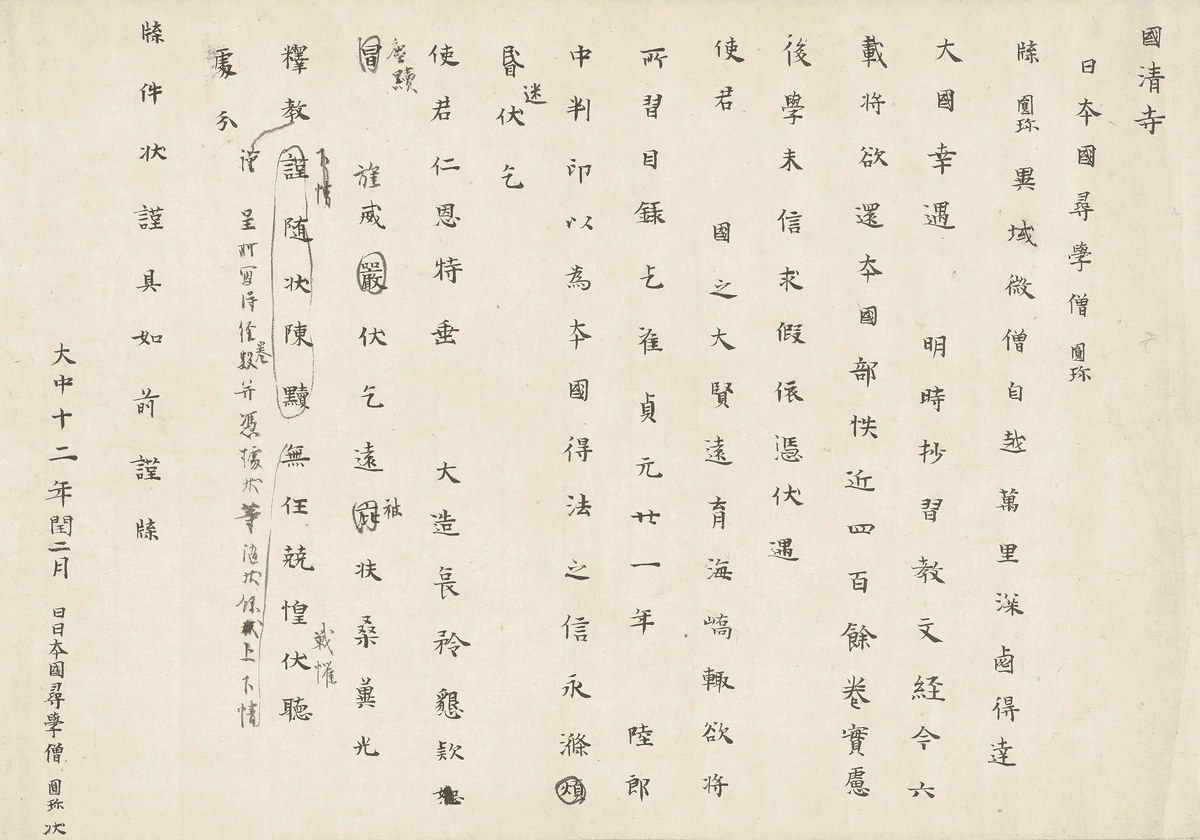 國清寺
日本國尋學僧圓珎
牒圓珎異域微僧自越萬里深得達
大國幸遇 明時抄習教文経今六
載将欲還本國部帙近四百餘卷實慮
後學未信求假依憑伏遇
使君 國之大賢遠育海嶠輙欲将
所習目録乞准貞元廿一年 陸郎
中判印以為本國得法之信永滌煩
昏迷伏乞
使君仁恩特垂 大造哀矜懇欵
冒塵黷旌威嚴伏乞遠被扶桒兾光
釋教謹随状陳黷無任兢惶伏聽
下情 戦懼
謹呈所寫得経卷數并憑據状等随状 上下情
處分
牒件状謹具如前謹牒
大中十二年閏二月 日日本國尋學僧圓珎状